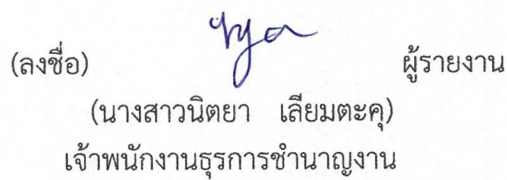 (ลงชื่อ) ผู้รายงาน
(นางสาวนิตยา เลียมตะคุ)
เจ้าพนักงานธุรการชำนาญงาน